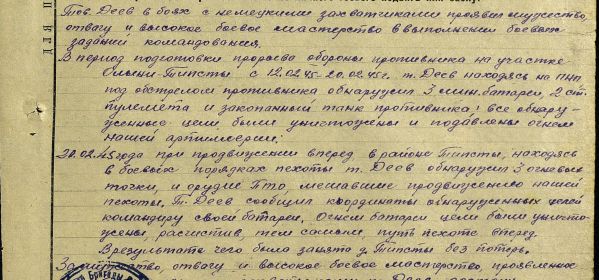 Тов. Деев в боях с немецкими захватчиками проявил мужество,
отвагу и высокое боевое мастерство в выполнении боевых
заданий командования.
В период подготовки прорыва обороны противника на участке
Типсты с 12.02.45-20.02.45г. т. Деев находясь на ПНП
под обстрелом противника обнаружил 3 мин. батареи, 2 ст.
пулемета и закопанный танк противника; все обнару-
женные цели были уничтожены и подавлены огнем
нашей артиллерии.
20.02.45 года при продвижении вперед в районе Типсты, находясь
в боевых порядках пехоты т. Деев обнаружил 3 огневые
точки, и орудие ПТО, мешавшие продвижению нашей
пехоты. Т. Деев сообщил координаты обнаруженных целей
командиру своей батареи. Огнем батареи цели были уничто-
жены, расчистив, тем самым, путь пехоте вперед.
В результате чего было занято д. Типсты без потерь.
За мужество, отвагу и высокое боевое мастерство, проявленное
Деев
БРИГАДЫ